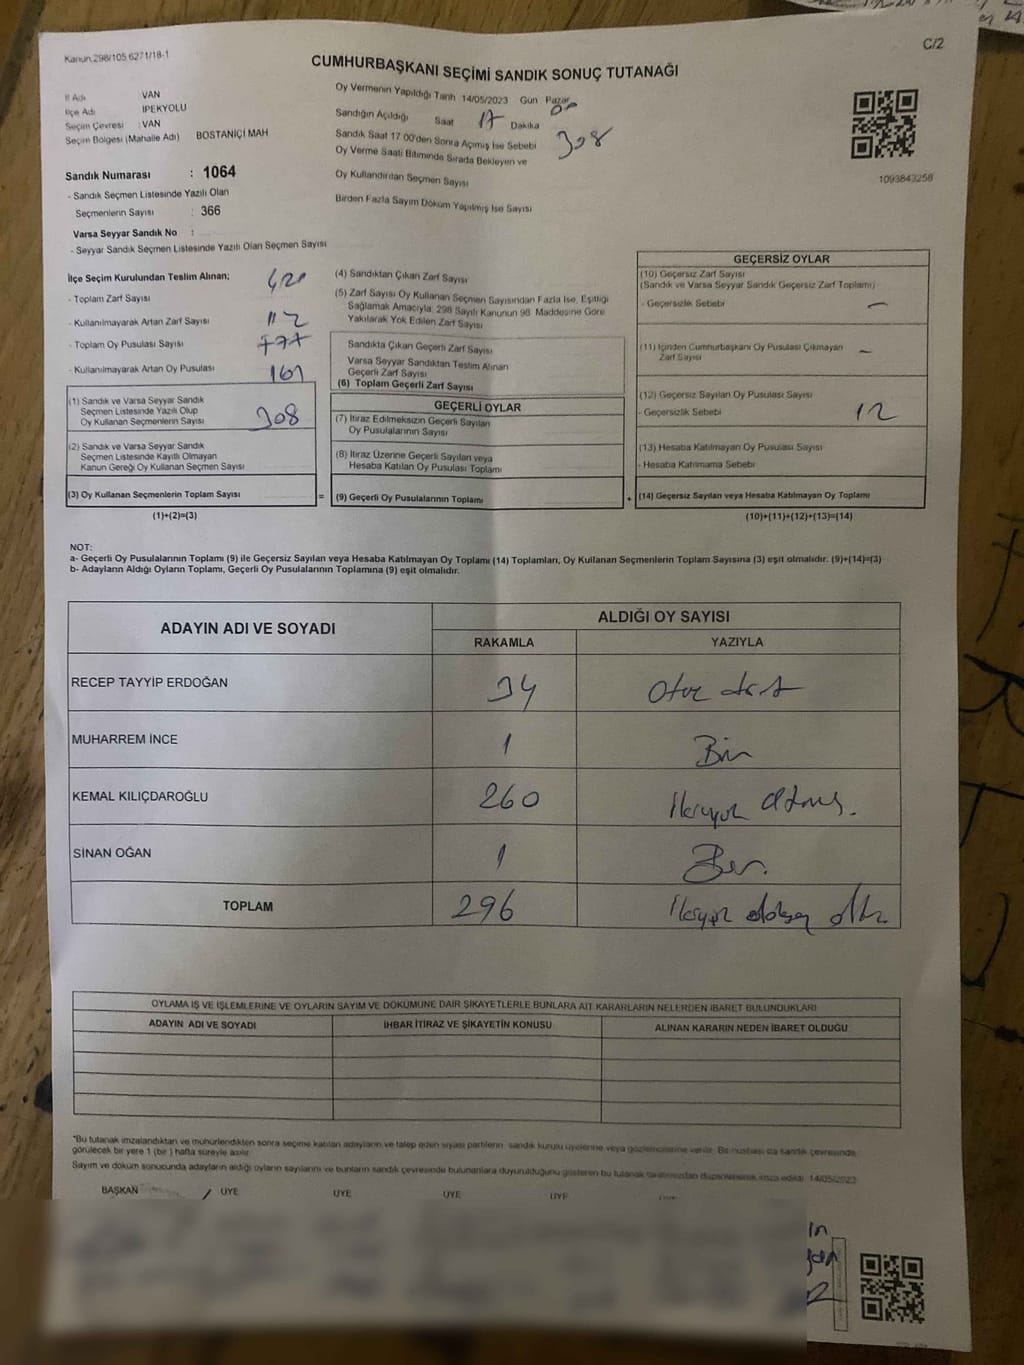 Kanun.298/105 6271/18-1
C/2
CUMHURBAŞKANI SEÇİMİ SANDIK SONUÇ TUTANAĞI
İl Adı VAN
İlçe Adı İPEKYOLU
Seçim Çevresi : VAN
Seçim Bölgesi (Mahalle Adı) BOSTANİÇİ MAH
Sandık Numarası : 1064
- Sandık Seçmen Listesinde Yazılı Olan
Seçmenlerin Sayısı : 366
Varsa Seyyar Sandık No :
- Seyyar Sandık Seçmen Listesinde Yazılı Olan Seçmen Sayısı
Oy Vermenin Yapıldığı Tarih 14/05/2023 Gün Pazar
Sandığın Açıldığı Saat 17 Dakika 00
Sandık Saat 17.00'den Sonra Açımış İse Sebebi
Oy Verme Saati Bitiminde Sırada Bekleyen ve
308
Oy Kullandırılan Seçmen Sayısı
Birden Fazla Sayım Döküm Yapılmış İse Sayısı
1093843258
İlçe Seçim Kurulundan Teslim Alınan;
- Toplam Zarf Sayısı 420
- Kullanılmayarak Artan Zarf Sayısı 112
- Toplam Oy Pusulası Sayısı
- Kullanılmayarak Artan Oy Pusulası 161
(1) Sandık ve Varsa Seyyar Sandık
Seçmen Listesinde Yazılı Olup
Oy Kullanan Seçmenlerin Sayısı 308
(2) Sandık ve Varsa Seyyar Sandık
Seçmen Listesinde Kayıtlı Olmayan
Kanun Gereği Oy Kullanan Seçmen Sayısı
(3) Oy Kullanan Seçmenlerin Toplam Sayısı
=
(1)+(2)=(3)
(4) Sandıktan Çıkan Zarf Sayısı
(5) Zarf Sayısı Oy Kullanan Seçmen Sayısından Fazla İse, Eşitliği
Sağlamak Amacıyla; 298 Sayılı Kanunun 98. Maddesine Göre
Yakılarak Yok Edilen Zarf Sayısı
Sandıkta Çıkan Geçerli Zarf Sayısı
Varsa Seyyar Sandıktan Teslim Alınan
Geçerli Zarf Sayısı
(6) Toplam Geçerli Zarf Sayısı
GEÇERLİ OYLAR
(7) İtiraz Edilmeksizin Geçerli Sayılan
Oy Pusulalarının Sayısı
(8) İtiraz Üzerine Geçerli Sayılan veya
Hesaba Katılan Oy Pusulası Toplamı
(9) Geçerli Oy Pusulalarının Toplamı
+
GEÇERSİZ OYLAR
(10) Geçersiz Zarf Sayısı
(Sandık ve Varsa Seyyar Sandık Geçersiz Zarf Toplamı)
- Geçersizlik Sebebi —
(11) İçinden Cumhurbaşkanı Oy Pusulası Çıkmayan
Zarf Sayısı —
(12) Geçersiz Sayılan Oy Pusulası Sayısı
- Geçersizlik Sebebi 12
(13) Hesaba Katılmayan Oy Pusulası Sayısı
- Hesaba Katılmama Sebebi
(14) Geçersiz Sayılan veya Hesaba Katılmayan Oy Toplamı
(10)+(11)+(12)+(13)=(14)
NOT:
a- Geçerli Oy Pusulalarının Toplamı (9) ile Geçersiz Sayılan veya Hesaba Katılmayan Oy Toplamı (14) Toplamları, Oy Kullanan Seçmenlerin Toplam Sayısına (3) eşit olmalıdır. (9)+(14)=(3)
b- Adayların Aldığı Oyların Toplamı, Geçerli Oy Pusulalarının Toplamına (9) eşit olmalıdır.
ADAYIN ADI VE SOYADI
ALDIĞI OY SAYISI
RAKAMLA YAZIYLA
RECEP TAYYİP ERDOĞAN 34 Otuz dört
MUHARREM İNCE 1 Bir
KEMAL KILIÇDAROĞLU 260 İkiyüz altmış.
SİNAN OĞAN 1 Bir.
TOPLAM 296 İkiyüz doksan altı
OYLAMA İŞ VE İŞLEMLERİNE VE OYLARIN SAYIM VE DÖKÜMÜNE DAİR ŞİKAYETLERLE BUNLARA AİT KARARLARIN NELERDEN İBARET BULUNDUKLARI
ADAYIN ADI VE SOYADI İHBAR İTİRAZ VE ŞİKAYETİN KONUSU ALINAN KARARIN NEDEN İBARET OLDUĞU
*Bu tutanak imzalandıktan ve mühürlendikten sonra seçime katılan adayların ve talep eden siyasi partilerin sandık kurulu üyelerine veya gözlemcilerine verilir. Bir nüshası da sandık çevresinde
görülecek bir yere 1 (bir) hafta süreyle asılır.
Sayım ve döküm sonucunda adayların aldığı oyların sayılarını ve bunların sandık çevresinde bulunanlara duyurulduğunu gösteren bu tutanak tarafımızdan düzenlenerek imza edildi. 14/05/2023
BAŞKAN ÜYE ÜYE ÜYE ÜYE